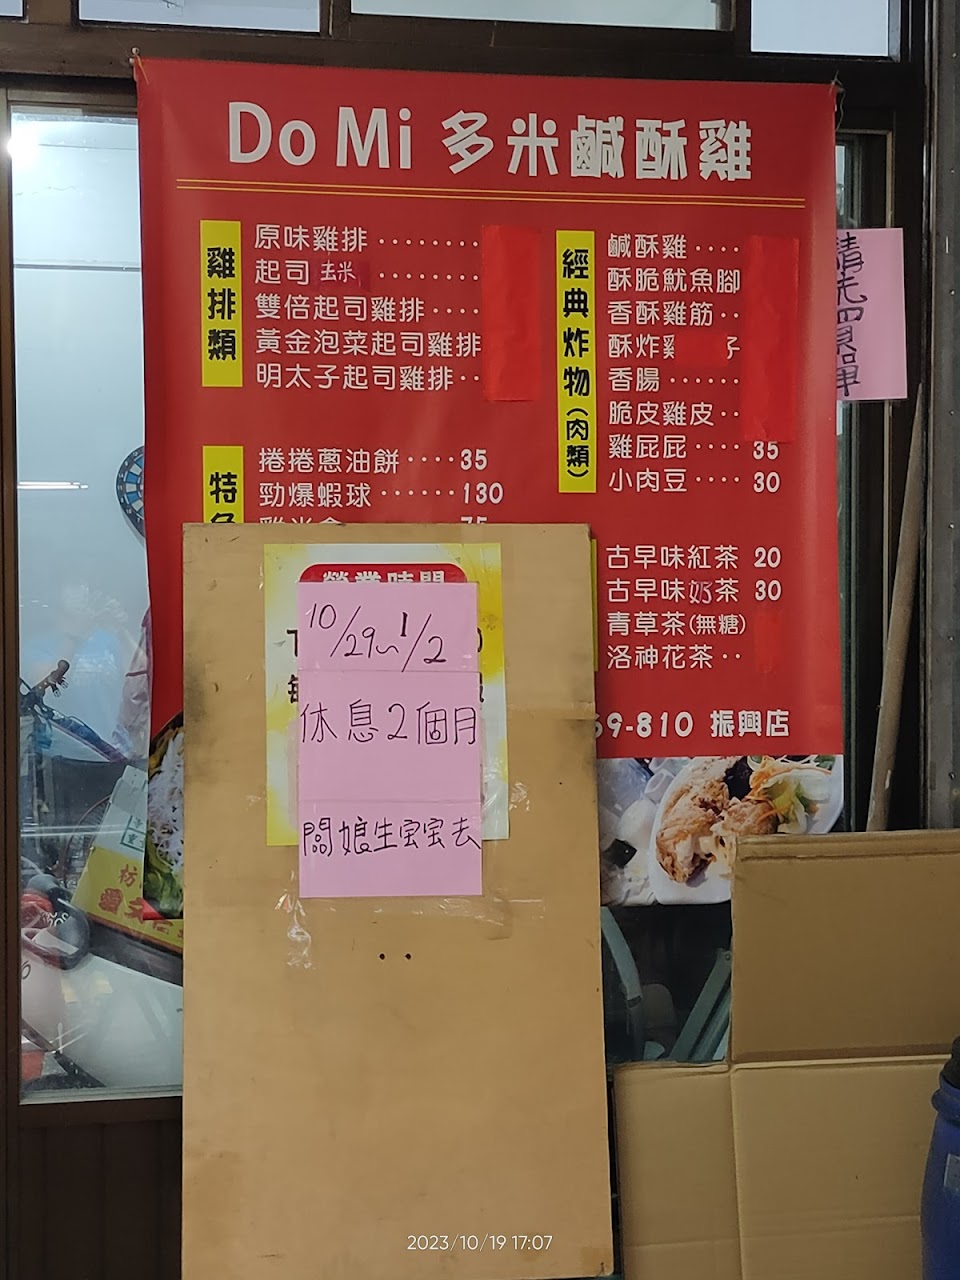 Do Mi 多米鹹酥雞
雞排類
原味雞排
起司
雙倍起司雞排
黃金泡菜起司雞排
明太子起司雞排
特
捲捲蔥油餅 35
勁爆蝦球 130
經典炸物(肉類)
鹹酥雞
酥脆魷魚腳
香酥雞筋
酥炸
香腸
脆皮雞皮
雞屁屁 35
小肉豆 30
古早味紅茶 20
古早味奶茶 30
青草茶(無糖)
洛神花茶
69-810 振興店
營業時間
10/29~1/2
休息2個月
闆娘生宝宝去
請先買單
2023/10/19 17:07